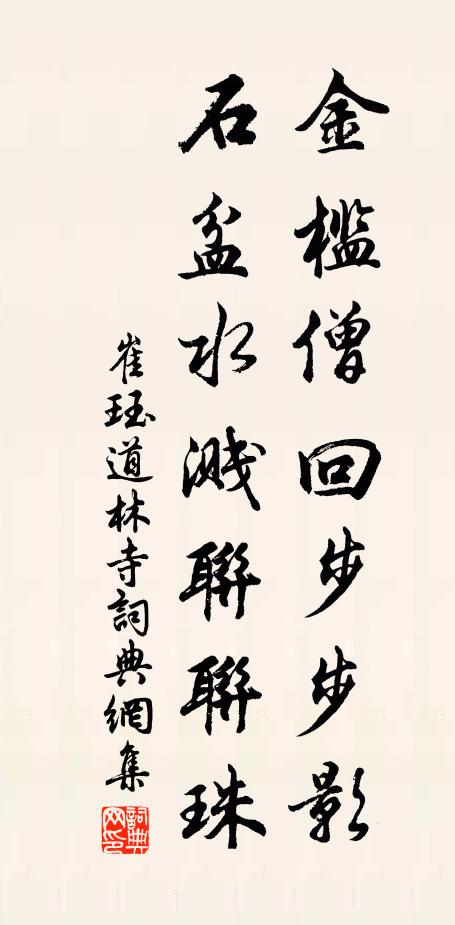 金檻僧回步步影
石盆水濺聯聯珠
崔珏道林寺詞典網集
詞典網印